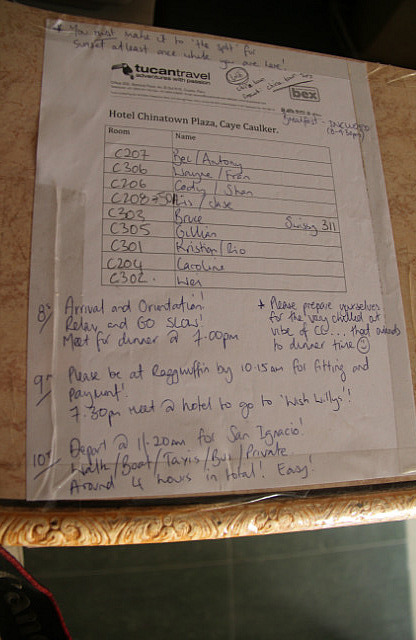 * You must make it to 'the split' for
sunset atleast once while you are here!
tucantravel
adventures with passion
bex
Breakfast - INCLUDED
Hotel Chinatown Plaza, Caye Caulker.
Room Name
C207 Bec/Antony
C306 Wayne/Fran
C206 Cody/Shan
C208 Lis/Chase
C303 Bruce
C305 Gillian
Swissy 311
C301 Kristian/Rio
C204 Caroline
C302.
8th Arrival and Orientation!
Relax and GO SLOW!
Meet for dinner @ 7.00pm
* Please prepare yourselves
for the very chilled out
vibe of CC.... that extends
to dinner time
9th Please be at Raggamuffin by 10.15am for fitting and
payment!
7.30pm meet @ hotel to go to 'Wish Willys'!
10th Depart @ 11.20am for San Ignacio!
Walk/Boat/Taxis/Bus/Private
Around 4 hours in total! Easy!